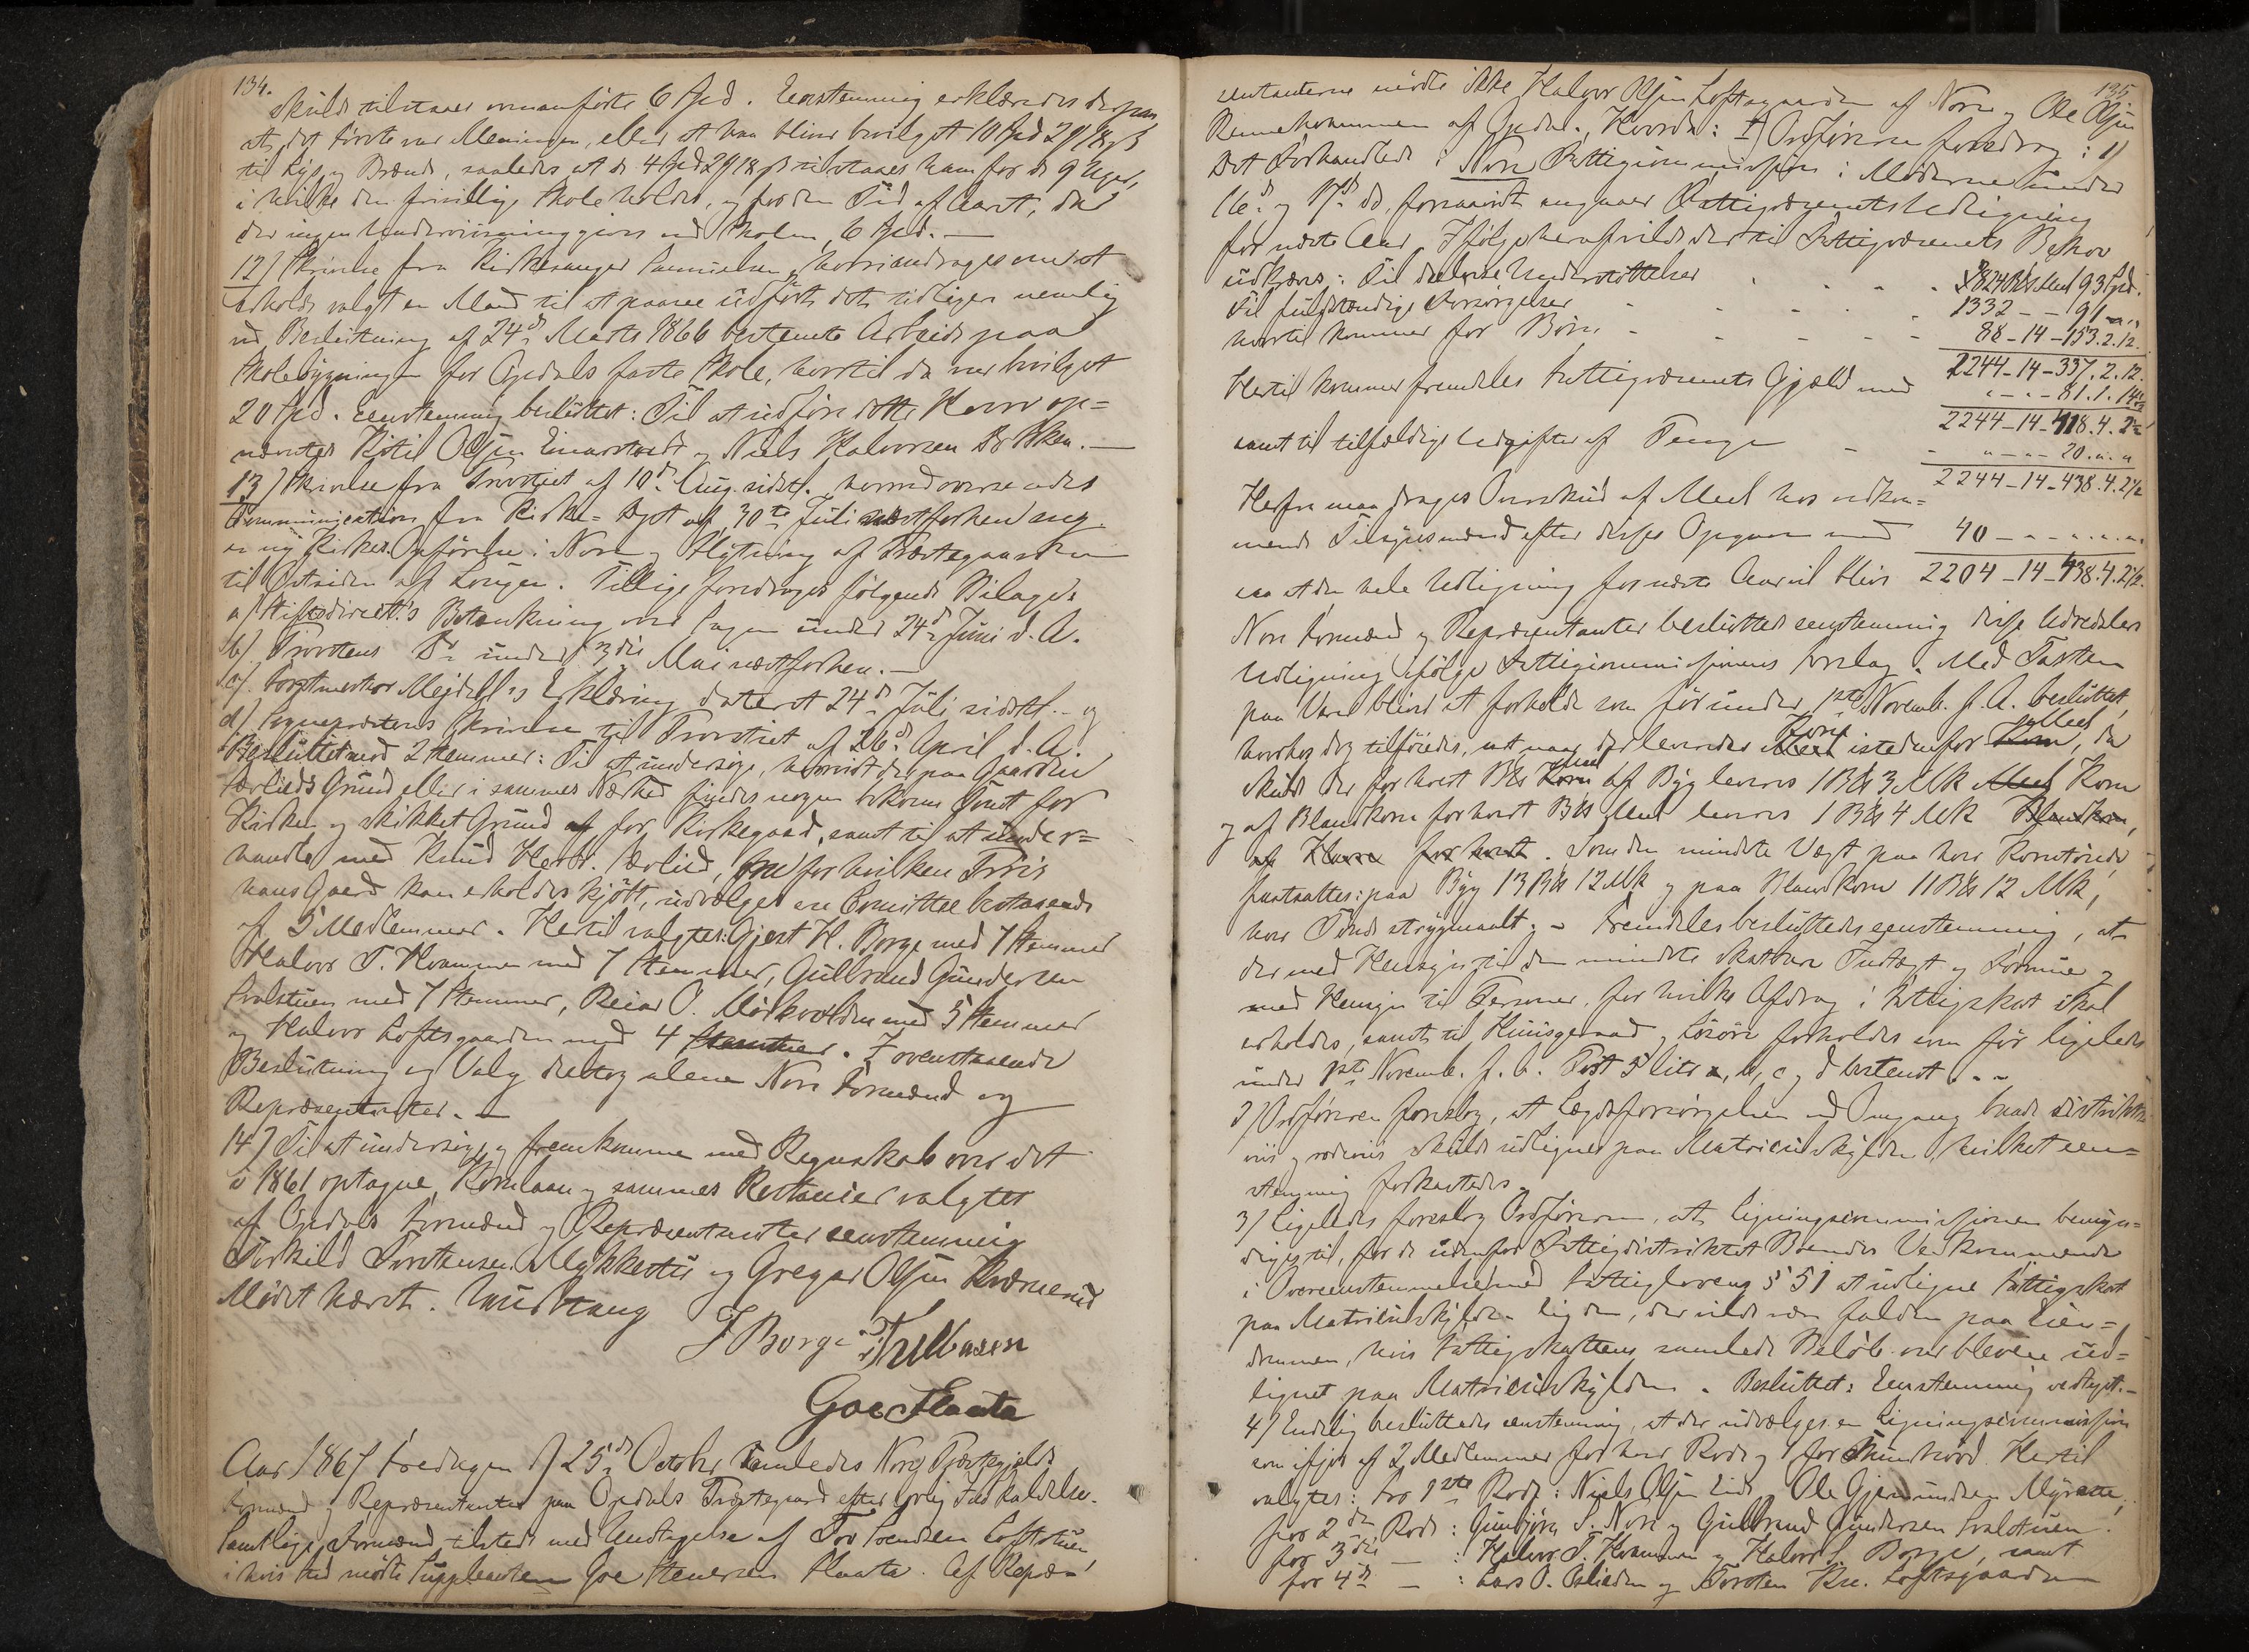 134.
skulde tilstaaes ovenanførte 6 Spd. Eenstemmig erklæredes derpaa,
at det første var Meningen, eller at han bliver bevilget 10 Spd
til Lys og Brænde, saaledes at de 4 Spd tilstaaes ham for de 9 Uger,
i hvilke den frivillige Skole holdes, og for den Tid af Aaret, da
der ingen Underviisning gives ved Skolen, 6 Spd. —
12) Skrivelse fra Kirkesanger Samuelsen, hvori andrages om at
erholde valgt en Mand til at paasee udført dets tidligere nemlig
ved Beslutning af 24de Marts 1866 bestemte Arbeide paa
Skolebygningen for Opdals faste Skole, hvortil da var bevilget
20 Spd. Eenstemmig besluttet: Til at udføre dette Hverv op=
nævntes Kjetil Olsen Einarstvedt og Niels Halvorsen Bråten. —
13) Skrivelse fra Provstiet af 10de Aug. sidstl. hvormed oversendes
Communication fra Kirke-Dept. af 30te Juli næstforhen ang.
en ny Kirkes Opførelse i Nore og Flytning af Præstegaarden
til Østsiden af Lougen. Tillige foredroges følgende Bilage:
a) Stiftsdirect.s Betænkning over Sagen under 24de Juni d. A.
b) Provstens Do under 3die Mai næstforhen. —
c) Forstmester Mejdell's Erklæring dateret 24de Juli sidstl. — og
d) Sognepræstens Skrivelse til Provstiet af 26de April d. A.
Besluttet med 2 Stemmer: Til at undersøge, hvorvidt der paa Gaarden
Grund eller i sammes Nærhed findes nogen bekvem Tomt for
Kirken og skikket Grund af for Kirkegaard, samt til at under=
handle med Knud Herbr. om for hvilken Priis
hans Gaard kan erholdes kjøbt, udvælges en Comittee bestaaende
af 5 Medlemmer. Hertil valgtes: Gjest H. Borge med 7 Stemmer
Halvor T. Kvammen med 7 Stemmer, Gulbrand Gundersen
Svalstuen med 7 Stemmer, Reiar O. Mørkvolden med 5 Stemmer
og Halvor Loftsgaarden med 4 Stemmer. I ovenstaaende
Beslutning og Valg deltog alene Nore Formænd og
Repræsentanter. —
14) Til at undersøge og fremkomme med Regnskab over det
i 1861 optagne Kornlaan og sammes Restancier valgtes
af Opdals Formænd og Repræsentanter eenstemmig
Torkild Torstensen Mykkestu og Gregar Olsen Kværnerud
Mødet hævet.
Borge
Goe Slaata
Aar 1867 Fredagen d 25de Octobr samledes Nore Præstegjelds
Formænd og Repræsentanter paa Opdals Præstegaard efter lovlig Indkaldelse.
Samtlige Formænd tilstede med Undtagelse af Tov Svendsen Loftstuen
i hvis Sted mødte Suppleanten Goe Stenersen Slaata. Af Repræ-
135
sentanterne mødte ikke Halvor Olsen Loftsgaarden af Nore og Ole Olsen
Rennehvammen af Opdal. Hvorda: I) Ordføreren foredrog: 1)
Det Forhandlede i Nore Fattigcommission i Møderne under
16de og 17de ds. forsaavidt angaaer Fattigvæsenets Udligning
for næste Aar. Ifølge heraf vilde der til Fattigvæsenets Behov
udkræves: Til delvise Understøttelser - - - - 824 Bdr Meel 93 Spd.
Til fuldstændige Forsørgelser - - - - - 1332 - - 91 - "
hvortil kommer for Børn - - - - - 88 - 14 - 153. 2. 12.
2244 - 14 - 337. 2. 12.
Hertil kommer fremdeles Fattigvæsenets Gjæld med " - " - 81. 1. 14½
2244 - 14 - 418. 4. 2½
samt til tilfældige Udgifter af Penge - - " - " - 20. " "
2244 - 14 - 438. 4. 2½
Herfra maa drages Overskud af Meel hos vedkom=
mende Tilsynsmænd efter disses Opgaver med 40 - - - " . " . "
saa at den hele Udligning for næste Aar vil blive 2204 - 14 - 438. 4. 2½.
Nore Formænd og Repræsentanter besluttede eenstemmig disse Udredslers
Udligning ifølge Fattigcommissionens Forslag. Med Taxten
paa Varer bliver at forholde som før under 1ste Novemb. f. A. besluttet,
hvorhos dog tilføiedes, at naar der leveredes Meel Korn istedenfor Korn Meel, da
skulde der for hvert Bd Korn Meel af Byg leveres 1 Bd 3 Mk Meel Korn
og af Blandkorn for hvert Bd Meel leveres 1 Bd 4 Mk Blandkorn,
af Havre for hvert. Som den mindste Vægt paa hver Korntønde
fastsattes: paa Byg 13 Bd 12 Mk og paa Blandkorn 11 Bd 12 Mk,
hver Tønde strygmaalt; — Fremdeles besluttedes eenstemmig, at
der med Hensyn til den mindste skatbare Indtægt og Formue og
med Hensyn til Personer, for hvilke Afdrag i Fattigskat skal
erholdes, samt til Huusgeraad og Løsøre forholdes som før ligeledes
under 1ste Novemb. f. A. Post 5 litr a, b, c og d bestemt. —
2) Ordføreren foreslog, at Lægdsforsørgelsen ved Omgang baade districts=
viis og rodeviis skulde udlignes paa Matriculskylden, hvilket een=
stemmig forkastedes.
3) Ligeledes foreslog Ordføreren, at Ligningscommissionen bemyn=
diges til, for de udenfor Fattigdistriktet Boendes Vedkommende
i Overeensstemmelse med Fattiglovens § 51 at udligne Fattigskat
paa Matriculskylden lig den, der vilde være falden paa Eien=
dommen, hvis Fattigskattens samlede Beløb var bleven ud=
lignet paa Matriculskylden. Besluttet: Eenstemmig vedtaget. —
4) Endelig besluttedes eenstemmig, at der udvælges en Ligningscommission
som ifjor af 2 Medlemmer for hver Rode og 1 for Hertil
valgtes: for 1ste Rode: Niels Olsen Eide og Ole Gjermundsen Myrene,
for 2den Rode: Gunbjørn S. Nore og Gulbrand Gundersen Svalstuen.
for 3die — : Halvor T. Kvammen og Halvor S. Borge, samt
for 4de — : Lars O. Øslieden og Torsten Kn. Loftsgaarden